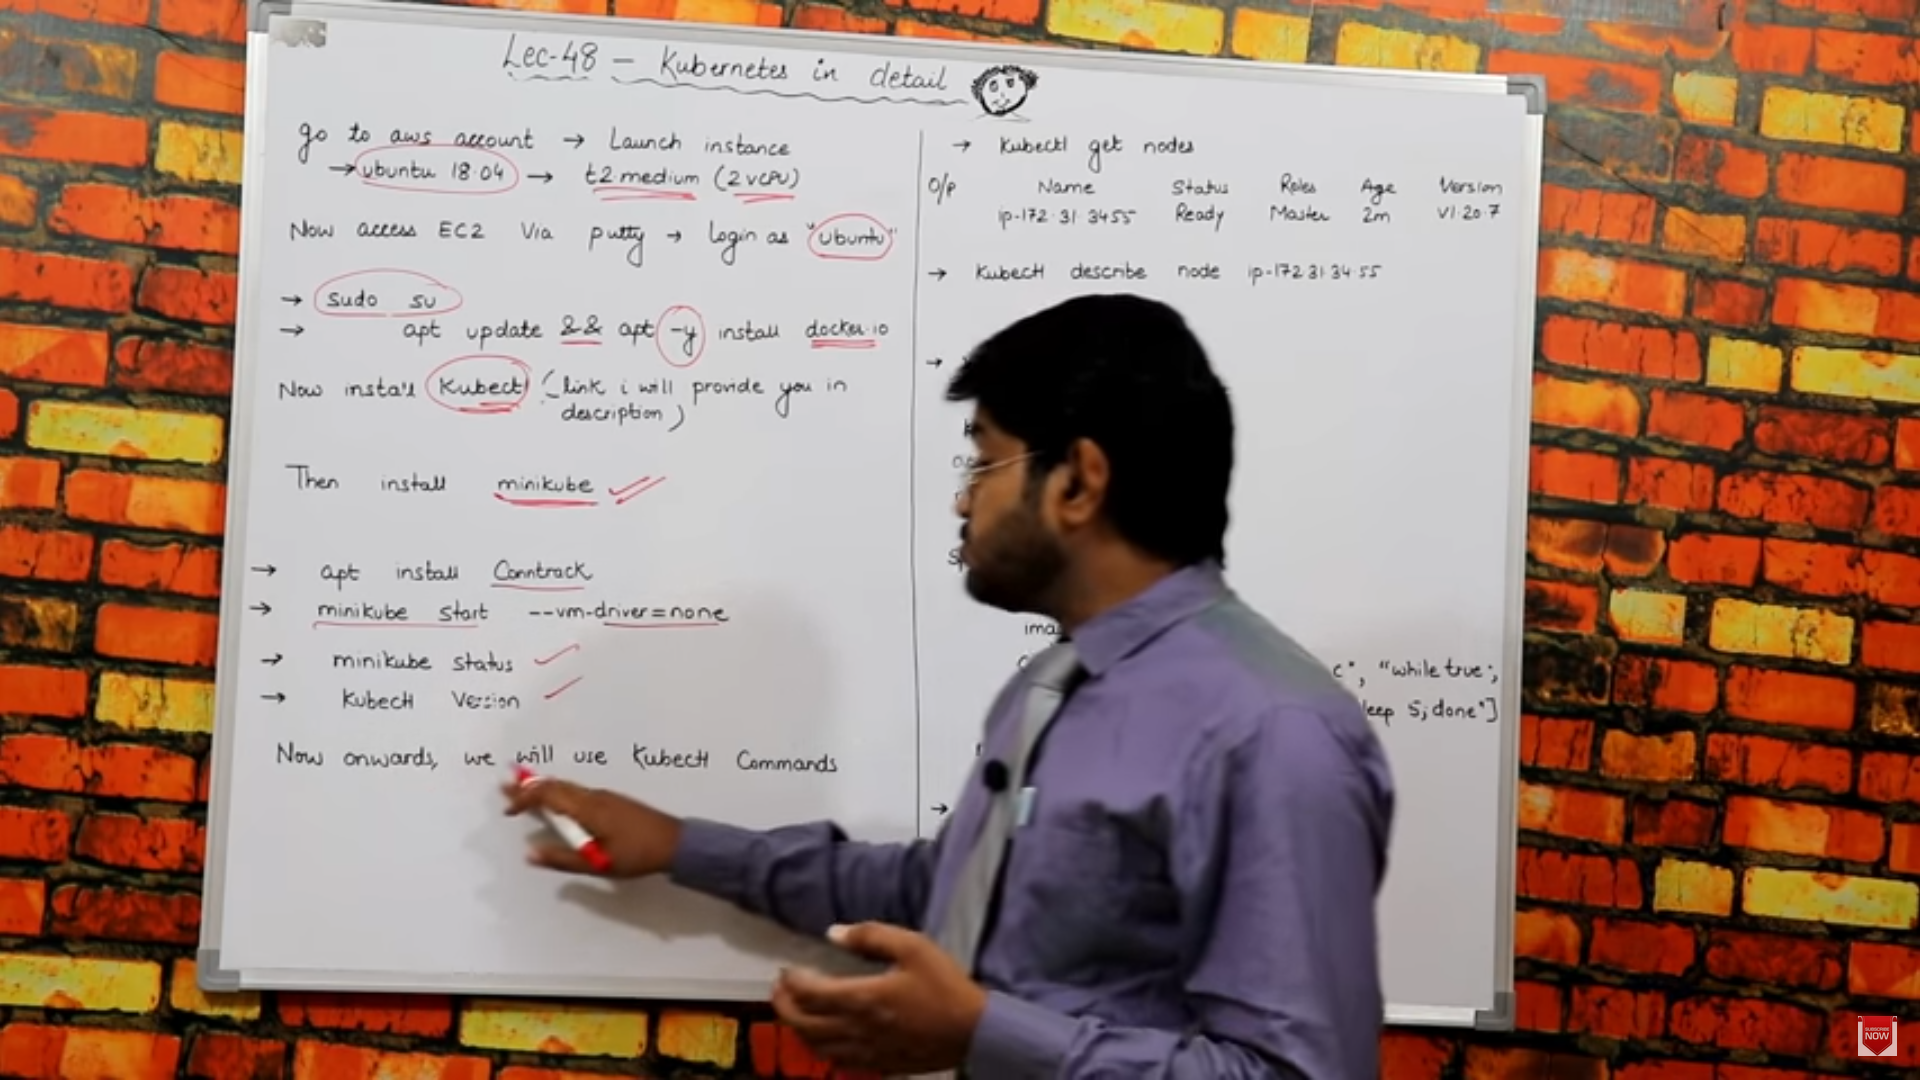 Lec-48 – Kubernetes in detail
go to aws account → Launch instance
→ ubuntu 18.04 → t2 medium (2 vCPU)
Now access EC2 Via putty → login as "Ubuntu"
→ sudo su
→ apt update && apt -y install docker.io
Now install Kubectl (link i will provide you in
description)
Then install minikube
→ apt install Conntrack
→ minikube start --vm-driver=none
→ minikube status
→ Kubectl Version
Now onwards, we will use Kubectl Commands
→ Kubectl get nodes
O/p Name Status Roles Age Version
ip-172.31.3455 Ready Master 2m V1.20.7
→ Kubectl describe node ip-172.31.34.55
→
ima
c", "while true;
leep 5; done"]
→
SUBSCRIBE
NOW